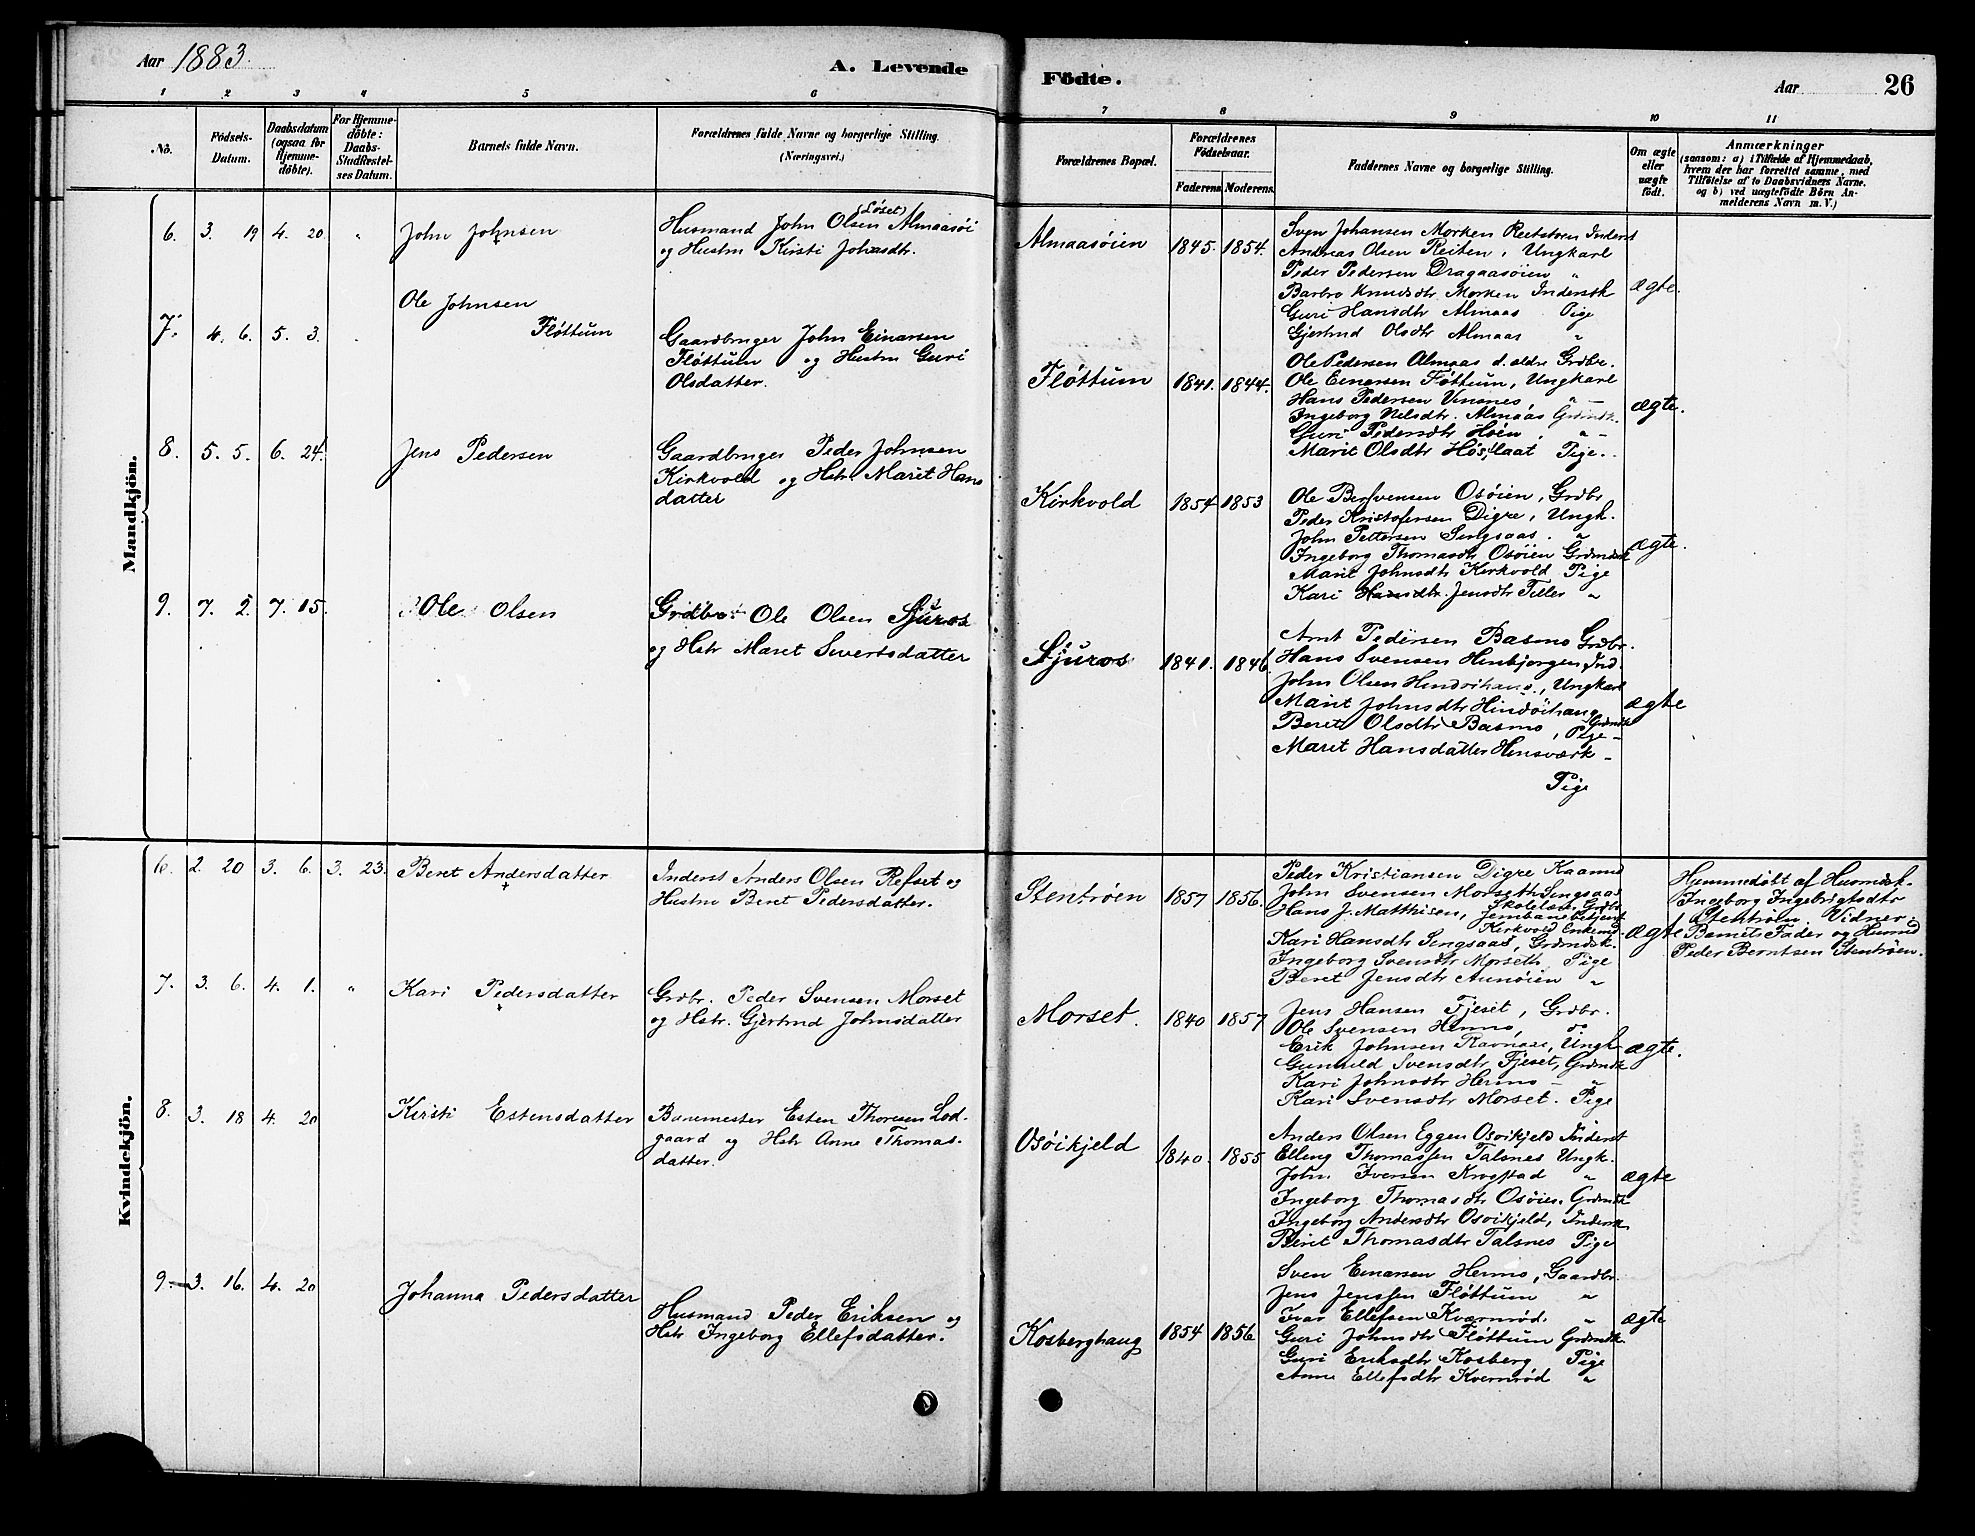 Aar 1883.
A. Levende
Födte.
Aar
26
1 2 3 4 5 6 7 8 9 10 11
No.
Födsels-
Datum.
Daabsdatum
(ogsaa for
Hjemme-
döbte).
For Hjemme-
döbte:
Daabs-
Stadfæstel-
ses Datum.
Barnets fulde Navn.
Forældrenes fulde Navne og borgerlige Stilling.
(Næringsvei.)
Forældrenes Bopæl.
Forældrenes
Fødselsaar.
Faderens. Moderens.
Faddernes Navne og borgerlige Stilling.
Om ægte
eller
uægte
födt.
Anmærkninger
(saasom: a) i Tilfælde af Hjemmedaab,
hvem der har forrettet samme, med
Tilföielse af to Daabsvidners Navne,
og b) ved uægtefödte Börn An-
melderens Navn m. V.)
Mandkjön.
6. 3. 19 4. 20 "
John Johnsen
(Løset)
Husmand John Olsen Almaasøi
og Hustru Kirsti Johnsdtr.
Almaasöien 1845. 1854.
Sven Johansen Morken Inderst
Andreas Olsen Reiten, Ungkarl
Peder Pedersen Dragaasöien "
Barbro Knudsdtr Morken Inderstk
Guri Hansdtr Almaas Pige
Gjertrud Olsdtr Almaas "
ægte.
7. 4. 6. 5. 3.
Ole Johnsen
Fløttum
Gaardbruger John Einarsen
Fløttum og Hustru Guri
Olsdatter.
Fløttum 1841. 1844.
Ole Pedersen Almaas d. eldre Grdbr.
Ole Einarsen Fløttum, Ungkarl
Hans Pedersen Vinsnes, " -
Ingeborg Nelsdtr. Almaas Grdmdk.
Guri Pedersdtr Höen, " -
Marit Olsdtr Pige.
ægte.
8. 5. 5. 6. 24.
Jens Pedersen
Gaardbruger Peder Johnsen
Kirkvold og Hstr. Marit Hans
datter
Kirkvold 1854 1853
Ole Berfvensen Osöien, Grdbr
Peder Kristofersen Digre, Ungk.
John Pettersen Singsaas. "
Ingeborg Thomasdtr Osöien Grdmdsk
Marit Johnsdtr Kirkvold Pige
Kari Hansdtr. Jensdtr Tiller "
ægte.
9. 7. 2. 7. 15.
Ole Olsen
Grdbr. Ole Olsen Sjuros
og Hstr Maret Sivertsdatter
Sjuros 1841. 1846.
Arnt Pedersen Basmo Grdbr.
Hans Svensen Hinbjorgen Ind.
John Olsen, Ungkarl
Marit Johnsdtr Hindöihaug
Grdmdk
Beret Olsdtr Basmo, Pige -
Maret Hansdatter Hensværk -
Pige
ægte
Kvindekjön.
6. 2. 20 3. 6. 3. 23.
Beret Andersdatter
Inderst Anders Olsen Refset og
Hustru Beret Pedersdatter.
Stentröen 1857 1856.
Peder Kristiansen Digre
John Svensen Morseth Singsaas
Hans J. Matthisen, Jernbanebetjent
Kirkvold Enkemd
Kari Hansdtr Singsaas, Grdmdsk.
Ingeborg Svensdtr Morseth Pige
Beret Jensdtr Aunöien "
ægte
Hjemmedøbt af Husmdsk.
Ingeborg Ingebrigtsdtr
Stentröen. Vidner:
Barnets Fader og Husmd
Peder Berntsen Stentröen.
7. 3. 6. 4. 1. "
Kari Pedersdatter
Grdbr. Peder Svensen Morset
og Hstr. Gjertrud Johnsdatter
Morset. 1840 1857
Jens Hansen Fjeset, Grdbr.
Ole Svensen Hermo, do
Erik Johnsen Ravnaas, Ungk
Gunhild Svensdtr Fjeset, Grdmdk
Kari Johnsdtr Hermo - "
Kari Svensdtr Morset. Pige
ægte.
8. 3. 18 4. 20
Kirsti Estensdatter
Banemester Esten Thoresen Lod-
gaard og Hstr Anne Thomas-
datter.
Osöikjeld 1840. 1855
Anders Olsen Eggen Osöikjeld Inderst
Elling Thomassen Talsnes Ungk.
John Iversen Krogstad "
Ingeborg Thomasdtr Osöien. Grdmdk
Ingeborg Andersdtr Osöikjeld, Indersk
Beret Thomasdtr Talsnes Pige
ægte
9. 3. 16. 4. 20
Johanna Pedersdatter
Husmand Peder Eriksen og
Hstr Ingeborg Ellefsdatter.
Kosberghaug 1854 1856
Sven Einarsen Hermo, Gaardbr.
Jens Jenssen Fløttum "
Ivar Ellefsen Kværnrød. "
Guri Johnsdtr Fløttum Grdmdk.
Guri Eriksdtr Kosberg Pige
Anne Ellefsdtr Kvernröd "
ægte